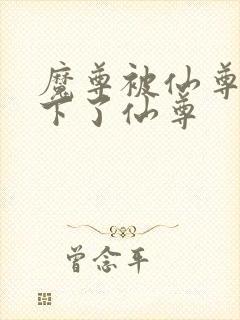 魔尊被仙尊
下了仙尊
曾念平